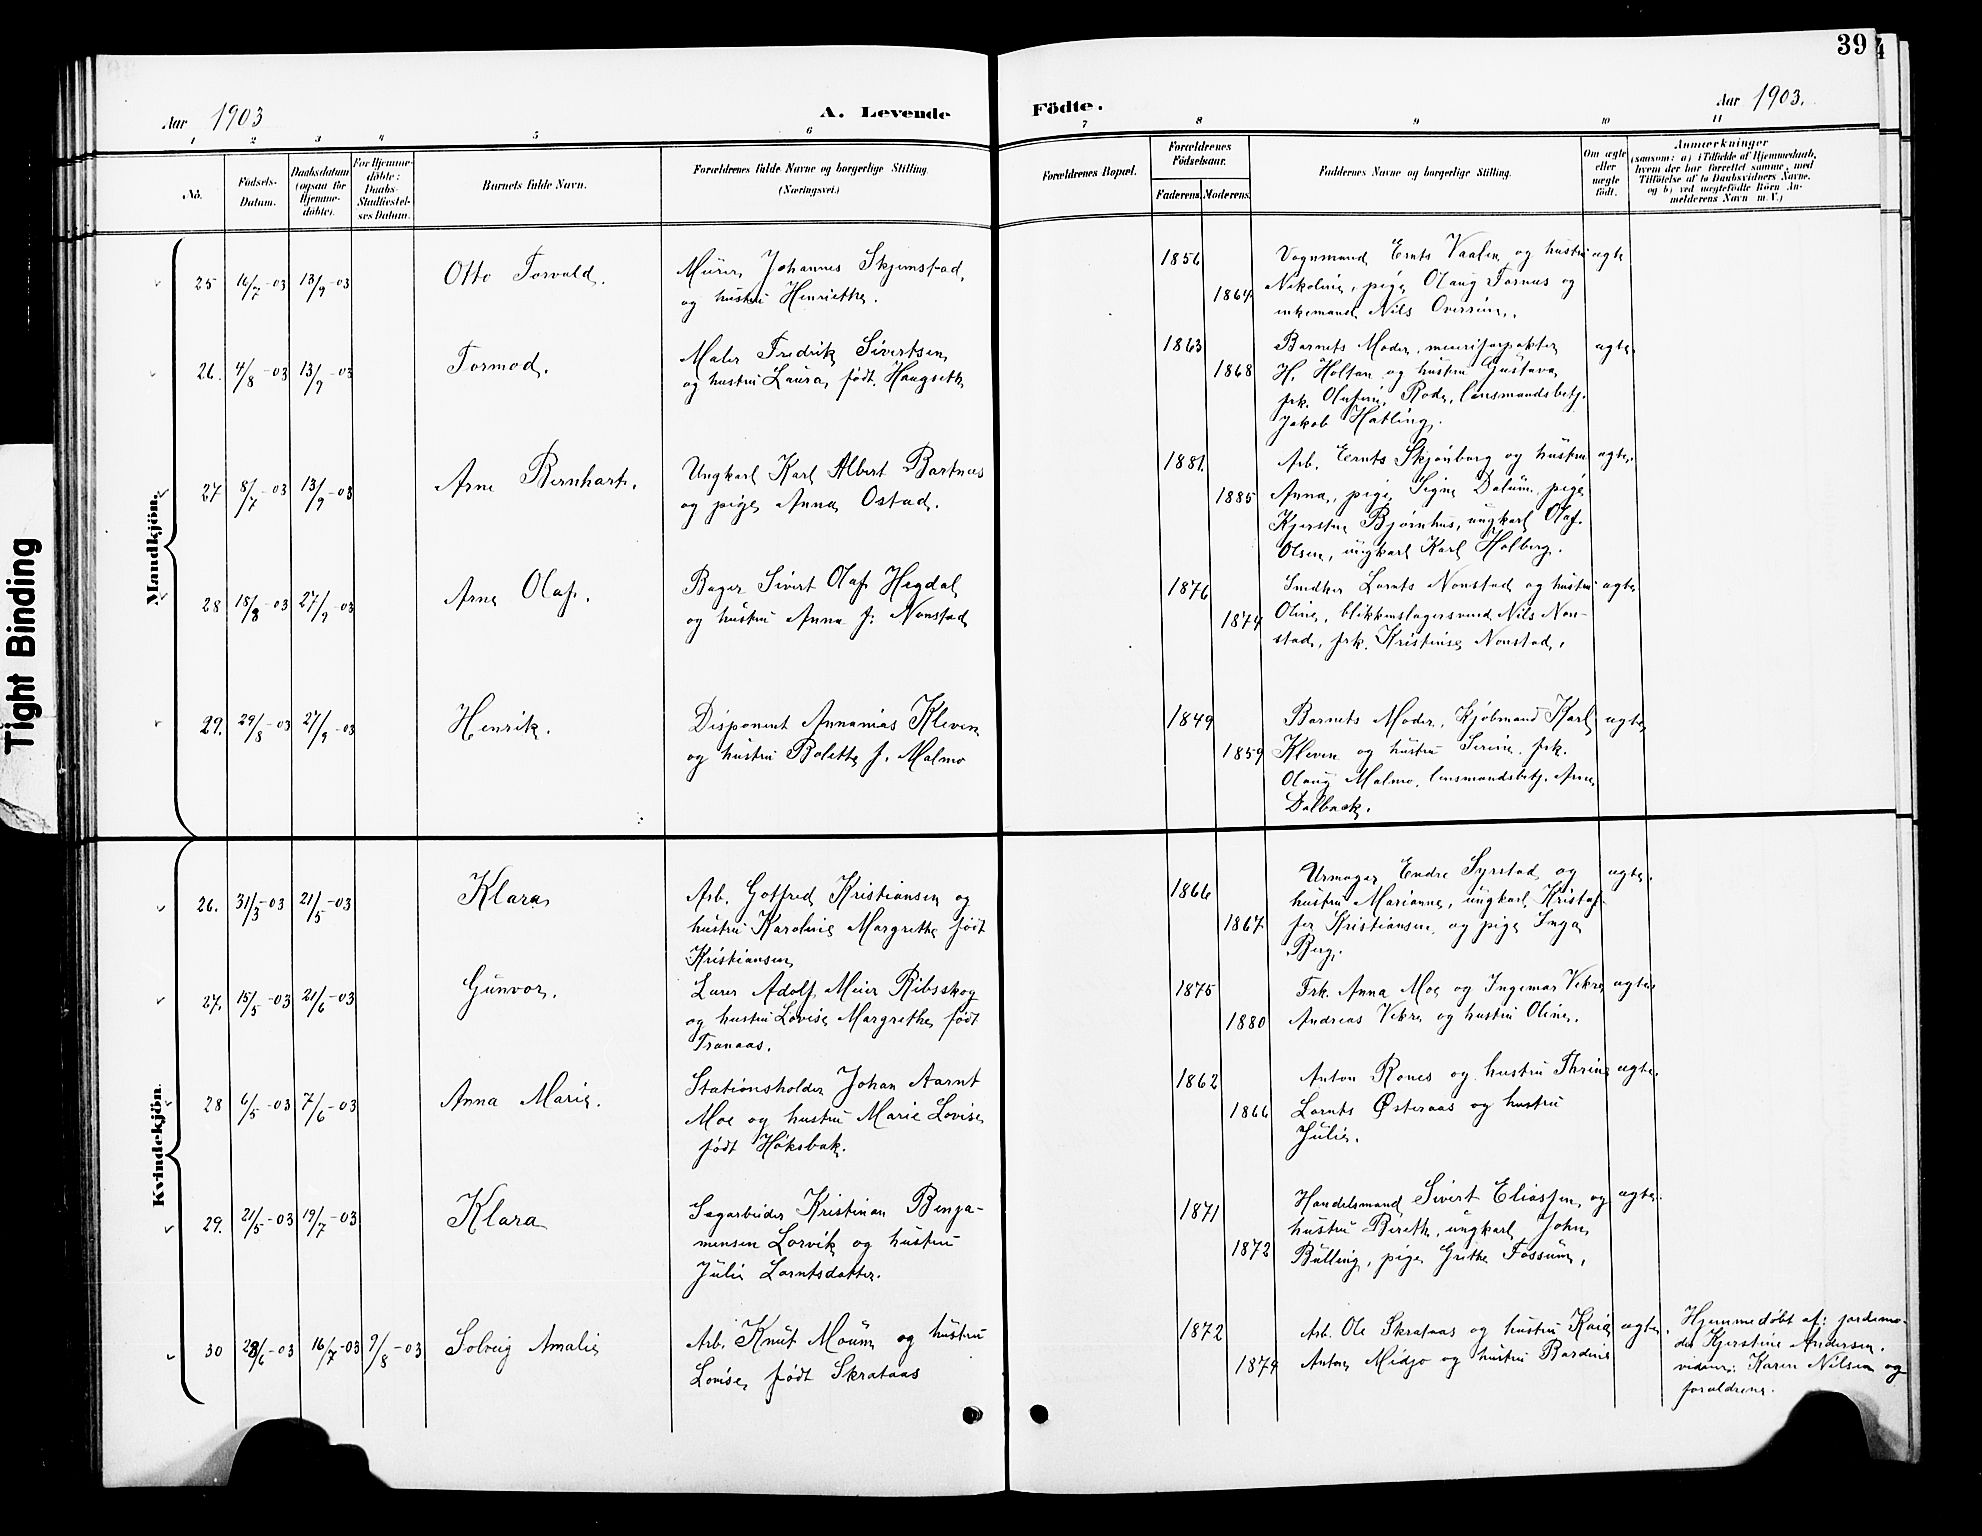 39
Aar 1903
A. Levende
Födte.
Aar 1903.
1 2 3 4 5 6 7 8 9 10 11
No.
Födsels-
Datum.
Daabsdatum
(ogsaa for
Hjemme-
döbte).
For Hjemme-
döbte:
Daabs-
Stadfæstel-
ses Datum.
Barnets fulde Navn.
Forældrenes fulde Navne og borgerlige Stilling.
(Næringsvei.)
Forældrenes Bopæl.
Forældrenes
Födselsaar.
Faderens. Moderens.
Faddernes Navne og borgerlige Stilling.
Om ægte
eller
uægte
födt.
Anmærkninger
(saasom: a) i Tilfælde af Hjemmedaab,
hvem der har forrettet samme, med
Tilföielse af to Daabsvidners Navne,
og b) ved uægtefödte Börn An-
melderens Navn m. V.)
Mandkjön.
25 16/7-03 13/9-03
Otto Torvald.
Murer Johannes Skjemstad,
og hustru Henriethe.
1856
1864
Vognmand Ernts Vaalen og hustru
Nikoline, pige Olaug Tornes og
enkemand Nils Overrein.
ægte
26. 4/8-03 13/9-03
Tormod.
Maler Fredrik Sivertsen
og hustru Laura, født Haugseth
1863
1868
Barnets Moder, meieriforpakter
H. Holtan og hustru Gustava,
frk. Olufine Rode, lensmandsbetj.
Jakob Hatling.
ægte
27 8/7-03 13/9-03
Arne Bernhart.
Ungkarl Karl Albert Bartnes
og pige Anna Ostad.
1881
1885
Arb. Ernts Skjönborg og hustru
Anna, pige Signe Dalum, pige
Kjerstine Bjørnhus, ungkarl Olaf
Olsen, ungkarl Karl Holberg.
ægte
28 18/8-03 27/9-03
Arne Olaf.
Bager Sivert Olaf Hegdal
og hustru Anna f: Nonstad
1876
1874
Snedker Lornts Nonstad og hustru
Oline, blikkenslagersvend Nils Non-
stad, frk. Kristine Nonstad.
ægte
29. 29/8-03 27/9-03
Henrik.
Disponent Annanias Kleven
og hustru Bolette f. Malmo
1849
1859
Barnets Moder, Kjøbmand Karl
Kleven og hustru Serine, frk.
Olaug Malmo, lensmandsbetj. Arne
Dalback.
ægte
Kvindekjön.
26. 31/3-03 21/5-03
Klara
Arb. Gotfred Kristiansen og
hustru Karoline Margrethe født
Kristiansen
1866
1867
Urmager Endre Syrstad og
hustru Marianne, ungkarl Kristof-
fer Kristiansen og pige Inga
Berg.
ægte
27. 15/5-03 21/6-03
Gunvor.
Lærer Adolf Meier Ribsskog
og hustru Lovise Margrethe født
Tranaas.
1875
1880
Frk. Anna Moe og Ingemar Vekre
Andreas Vekre og hustru Oline.
ægte
28 6/5-03 7/6-03
Anna Marie.
Stationsholder Johan Aarnt
Moe og hustru Marie Lovise
født Høksbak.
1862
1866
Anton Rones og hustru Thrine
Lornts Østeraas og hustru
Julie.
ægte
29. 21/5-03 19/7-03
Klara
Sagarbeider Kristinan Benja-
mensen Lorvik og hustru
Julie Lorntsdatter.
1871
1872
Handelsmand Sivert Eliassen og
hustru Bereth, ungkarl John
Bulling, pige Grethe Fossum.
ægte
30 28/6-03 16/7-03 9/8-03
Solveig Amalie
Arb. Knut Moum og hustru
Lovise født Skrataas
1872
1874
Arb. Ole Skrataas og hustru Kaia
Anton Midjo og hustru Bardine
ægte
Hjemmedøbt af: jordemo-
der Kjerstine Andersen.
vidner: Karen Nilsen og
forældrene.
Tight Binding